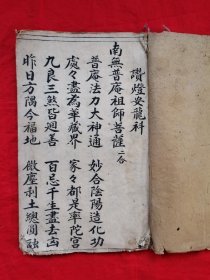 讚燈安龍科
南無普庵祖師菩薩
普庵法力大神通 妙合陰陽造化功
處々盡為華藏界 家々都是率陀宮
九良三煞皆迴善 百忌千生盡去凶
昨日方隅今福地 微塵刹土總圓融